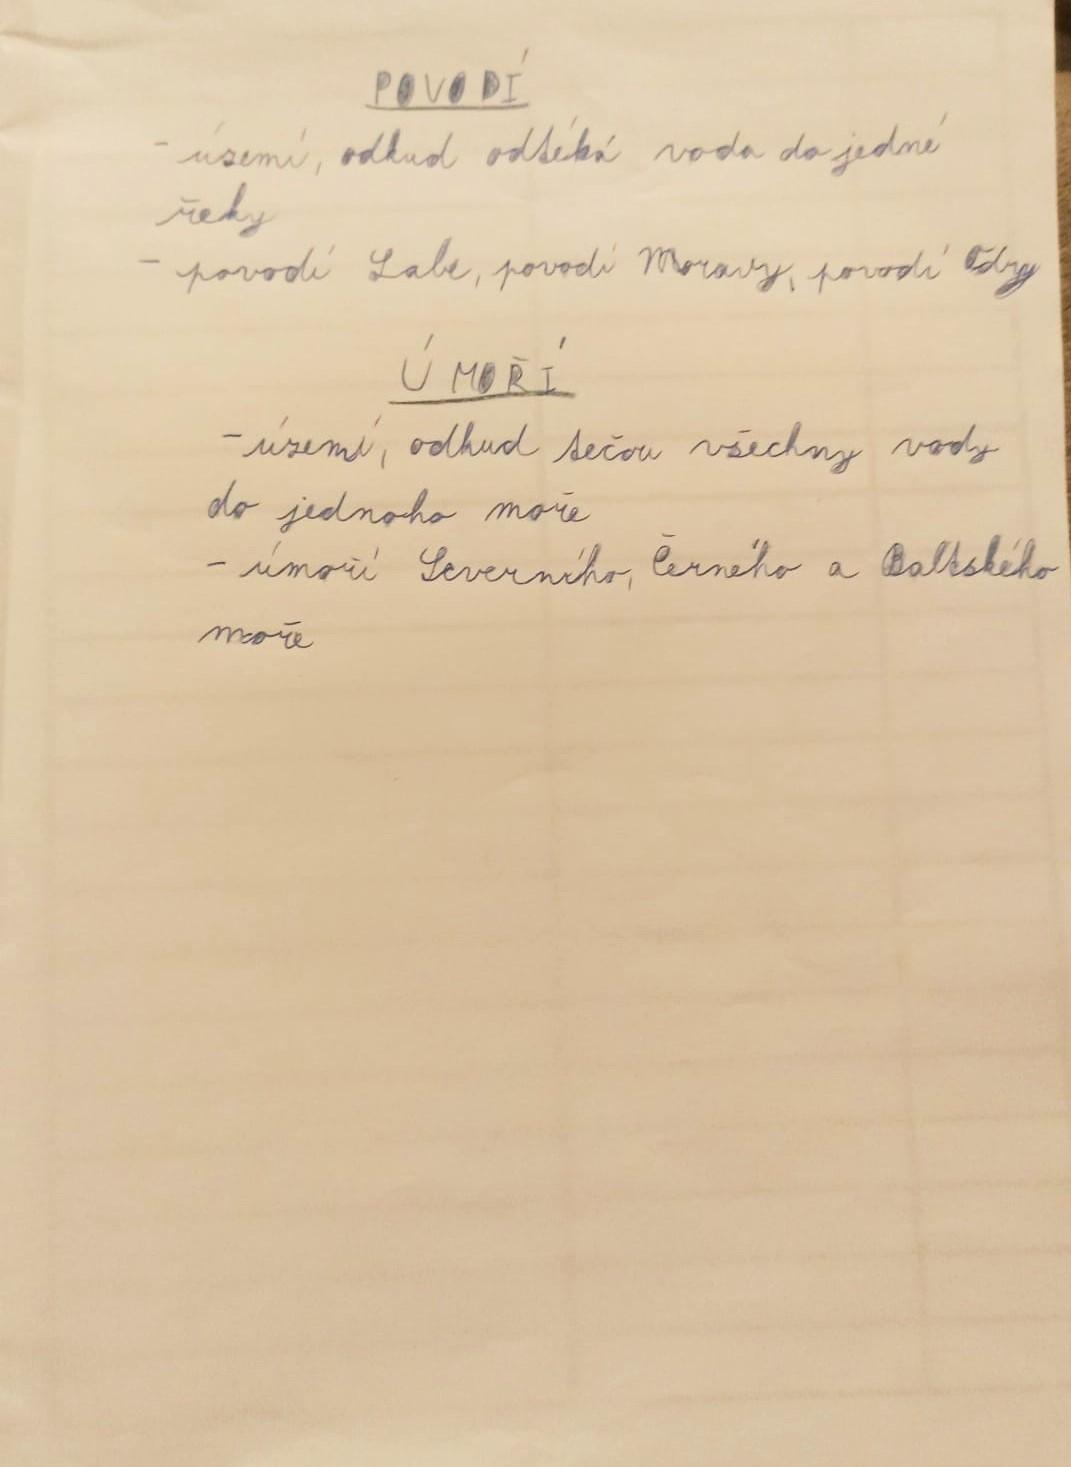 POVODÍ
- území, odkud odtéká voda do jedné
řeky
- povodí Labe, povodí Moravy, povodí Odry
ÚMOŘÍ
- území, odkud tečou všechny vody
do jednoho moře
- úmoří Severního, Černého a Baltského
moře